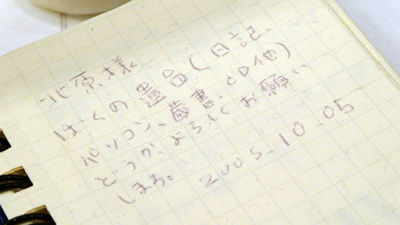 氷原様
ぼくの遺品(日記、
パソコン、蔵書、CD他)
どうかよろしくお願い
します。 2005.10.05